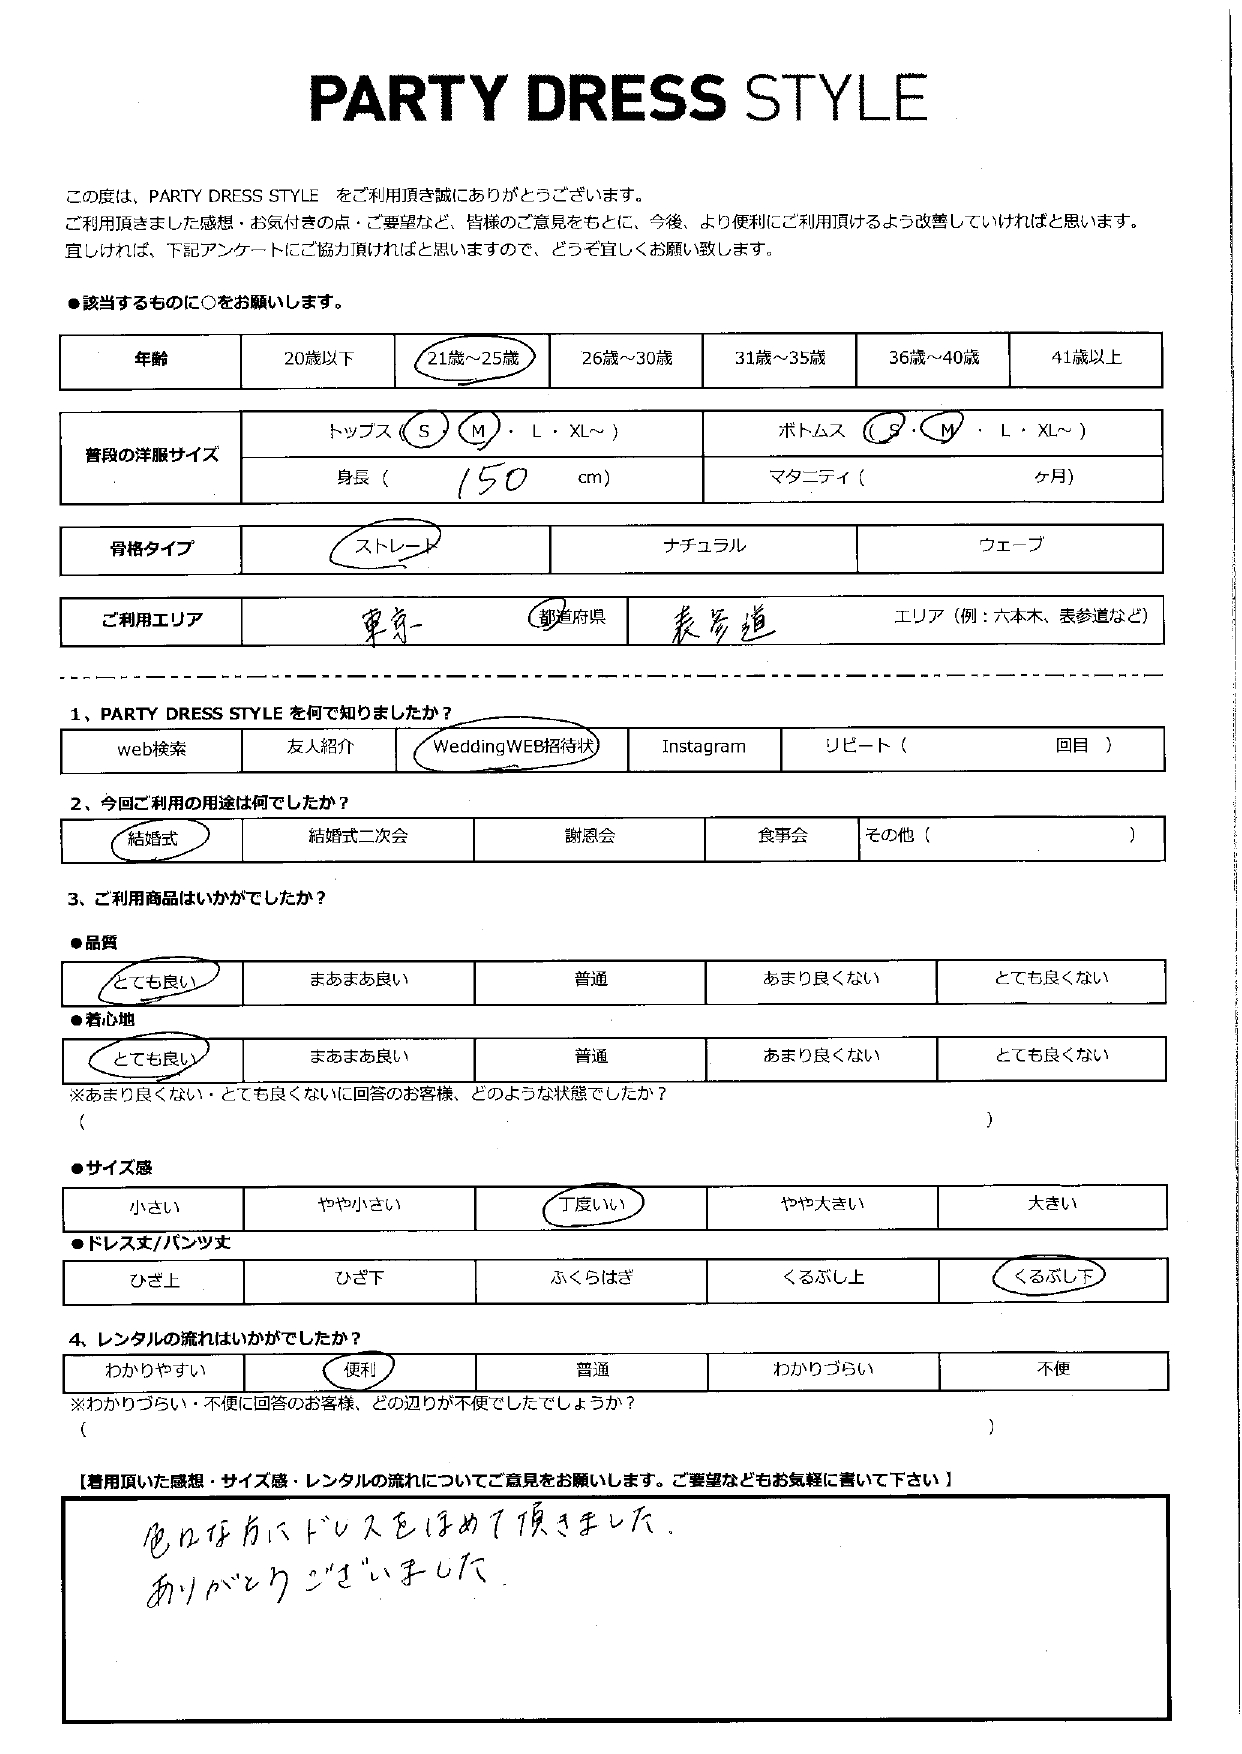 PARTY DRESS STYLE
この度は、PARTY DRESS STYLE をご利用頂き誠にありがとうございます。
ご利用頂きました感想・お気付きの点・ご要望など、皆様のご意見をもとに、今後、より便利にご利用頂けるよう改善していければと思います。
宜しければ、下記アンケートにご協力頂ければと思いますので、どうぞ宜しくお願い致します。
●該当するものに○をお願いします。
年齢 20歳以下 21歳～25歳 26歳～30歳 31歳～35歳 36歳～40歳 41歳以上
普段の洋服サイズ
トップス ( S ・ M ・ L ・ XL～ ) ボトムス ( S ・ M ・ L ・ XL～ )
身長 ( 150 cm) マタニティ ( ヶ月)
骨格タイプ ストレート ナチュラル ウェーブ
ご利用エリア 東京 都道府県 表参道 エリア（例：六本木、表参道など）
1、PARTY DRESS STYLE を何で知りましたか？
web検索 友人紹介 WeddingWEB招待状 Instagram リピート（ 回目 ）
2、今回ご利用の用途は何でしたか？
結婚式 結婚式二次会 謝恩会 食事会 その他（ ）
3、ご利用商品はいかがでしたか？
●品質
とても良い まあまあ良い 普通 あまり良くない とても良くない
●着心地
とても良い まあまあ良い 普通 あまり良くない とても良くない
※あまり良くない・とても良くないに回答のお客様、どのような状態でしたか？
（ ）
●サイズ感
小さい やや小さい 丁度いい やや大きい 大きい
●ドレス丈/パンツ丈
ひざ上 ひざ下 ふくらはぎ くるぶし上 くるぶし下
4、レンタルの流れはいかがでしたか？
わかりやすい 便利 普通 わかりづらい 不便
※わかりづらい・不便に回答のお客様、どの辺りが不便でしたでしょうか？
（ ）
【着用頂いた感想・サイズ感・レンタルの流れについてご意見をお願いします。ご要望などもお気軽に書いて下さい 】
色んな方にドレスをほめて頂きました.
ありがとうございました.